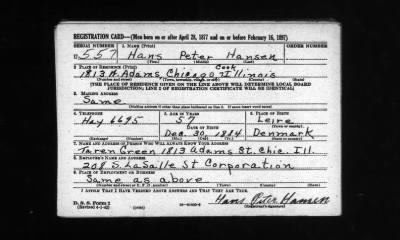 REGISTRATION CARD—(Men born on or after April 28, 1877 and on or before February 16, 1897)
SERIAL NUMBER 1. NAME (Print) ORDER NUMBER
U 557 Hans Peter Hansen
2. PLACE OF RESIDENCE (Print) Cook
1813 A. Adams, Chicago Illinois
(Number and street) (Town, township, village, or city) (County) (State)
[THE PLACE OF RESIDENCE GIVEN ON THE LINE ABOVE WILL DETERMINE LOCAL BOARD
JURISDICTION; LINE 2 OF REGISTRATION CERTIFICATE WILL BE IDENTICAL]
3. MAILING ADDRESS
Same
[Mailing address if other than place indicated on line 2. If same insert word same]
4. TELEPHONE 5. AGE IN YEARS 6. PLACE OF BIRTH
57 Leire
Hay 6695 DATE OF BIRTH
Dec. 30, 1884 Denmark
7. NAME AND ADDRESS OF PERSON WHO WILL ALWAYS KNOW YOUR ADDRESS
Taren Green 1813 Adams St. Chic. Ill.
8. EMPLOYER'S NAME AND ADDRESS
208 S. LaSalle St Corporation
9. PLACE OF EMPLOYMENT OR BUSINESS
Same as above
(Number and street or R. F. D. number) (Town) (County) (State)
I AFFIRM THAT I HAVE VERIFIED ABOVE ANSWERS AND THAT THEY ARE TRUE.
D. S. S. Form 1
(Revised 4-1-42) Hans Peter Hansen
(Registrant's signature)